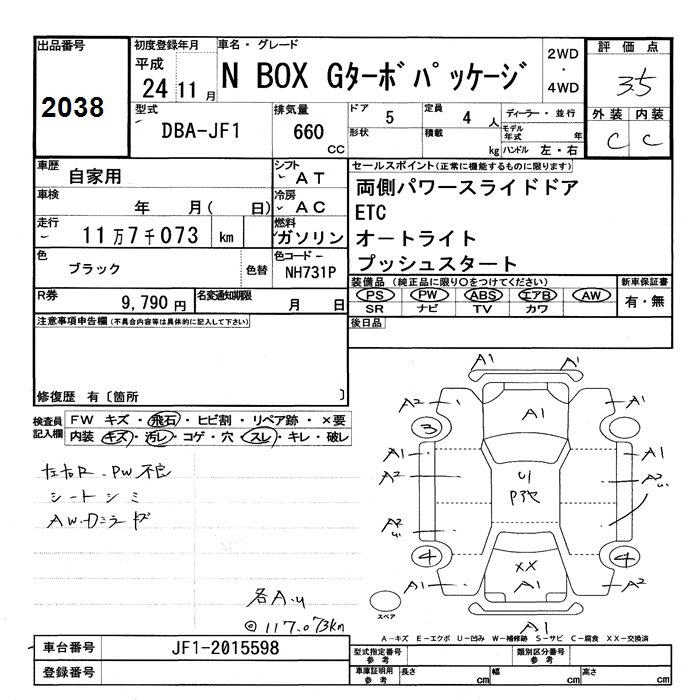 出品番号 初度登録年月 車名・グレード 2WD・4WD 評価点
2038 平成 24 11月 N BOX Gターボパッケージ 3.5
型式 排気量 ドア 5 定員 4人 ディーラー・並行 外装 内装
DBA-JF1 660 CC 形状 積載 kg モデル年式 年 ハンドル 左・右 C C
車歴 自家用 シフト AT セールスポイント(正常に機能するものに限ります)
車検 年 月( 日) 冷房 AC 両側パワースライドドア
ETC
走行 11万7千073 km 燃料 ガソリン オートライト
プッシュスタート
色 ブラック 色替 色コード NH731P
装備品 (純正品に限り○をつけてください) 新車保証書
R券 9,790円 名変通知期限 月 日 PS PW ABS エアB AW 有・無
SR ナビ TV カワ
注意事項申告欄(不具合内容等は具体的に記入して下さい) 後日品
修復歴 有〔箇所 〕
検査員記入欄 FW キズ・飛石・ヒビ割・リペア跡・×要
内装 キズ・汚レ・コゲ・穴・スレ・キレ・破レ
PW不良
シートシミ
A1 A1
A2 A1 A1
3
A1 A1
A2 U1 A2
A2
4 4
XX
A1 A1 A2
スペア A1
各A.U
117.073km
A-キズ E-エクボ U-凹み W-補修跡 S-サビ C-腐食 XX-交換済
車台番号 JF1-2015598 型式指定番号 参考 類別区分番号 参考
登録番号 車庫証明用 参考 長さ cm 幅 cm 高さ cm